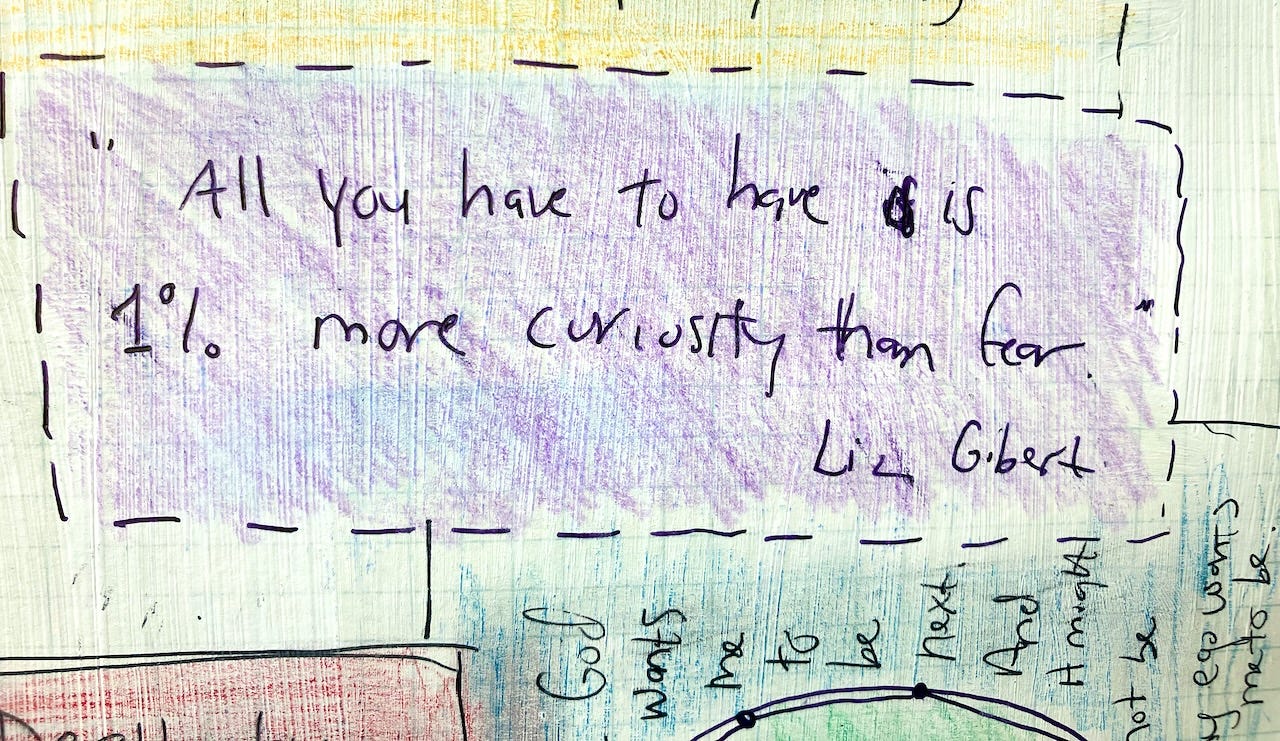 "All you have to have is
1% more curiosity than fear."
Liz Gibert
God
wants
me
to
be
next.
And
it might
not be
my ego wants
me to be.